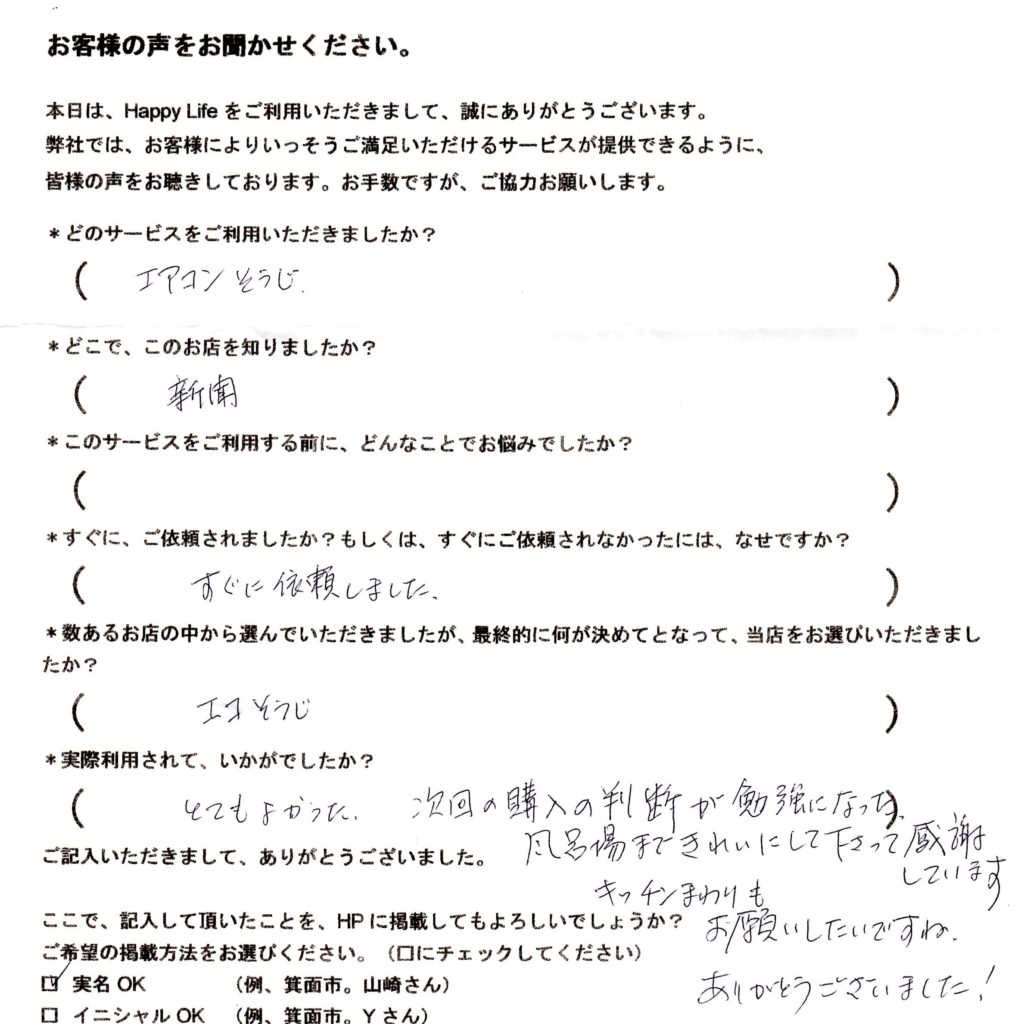 お客様の声をお聞かせください。
本日は、Happy Life をご利用いただきまして、誠にありがとうございます。
弊社では、お客様によりいっそうご満足いただけるサービスが提供できるように、
皆様の声をお聴きしております。お手数ですが、ご協力お願いします。
＊どのサービスをご利用いただきましたか？
（ エアコンそうじ. ）
＊どこで、このお店を知りましたか？
（ 新聞 ）
＊このサービスをご利用する前に、どんなことでお悩みでしたか？
（ ）
＊すぐに、ご依頼されましたか？もしくは、すぐにご依頼されなかったには、なぜですか？
（ すぐに依頼しました. ）
＊数あるお店の中から選んでいただきましたが、最終的に何が決めてとなって、当店をお選びいただきまし
たか？
（ エコそうじ ）
＊実際利用されて、いかがでしたか？
（ とてもよかった. 次回の購入の判断が勉強になった. ）
風呂場まできれいにして下さって感謝
しています
ご記入いただきまして、ありがとうございました。
キッチンまわりも
お願いしたいですね.
ありがとうございました！
ここで、記入して頂いたことを、HP に掲載してもよろしいでしょうか？
ご希望の掲載方法をお選びください。（口にチェックしてください）
☑ 実名 OK （例、箕面市。山崎さん）
□ イニシャル OK （例、箕面市。Y さん）